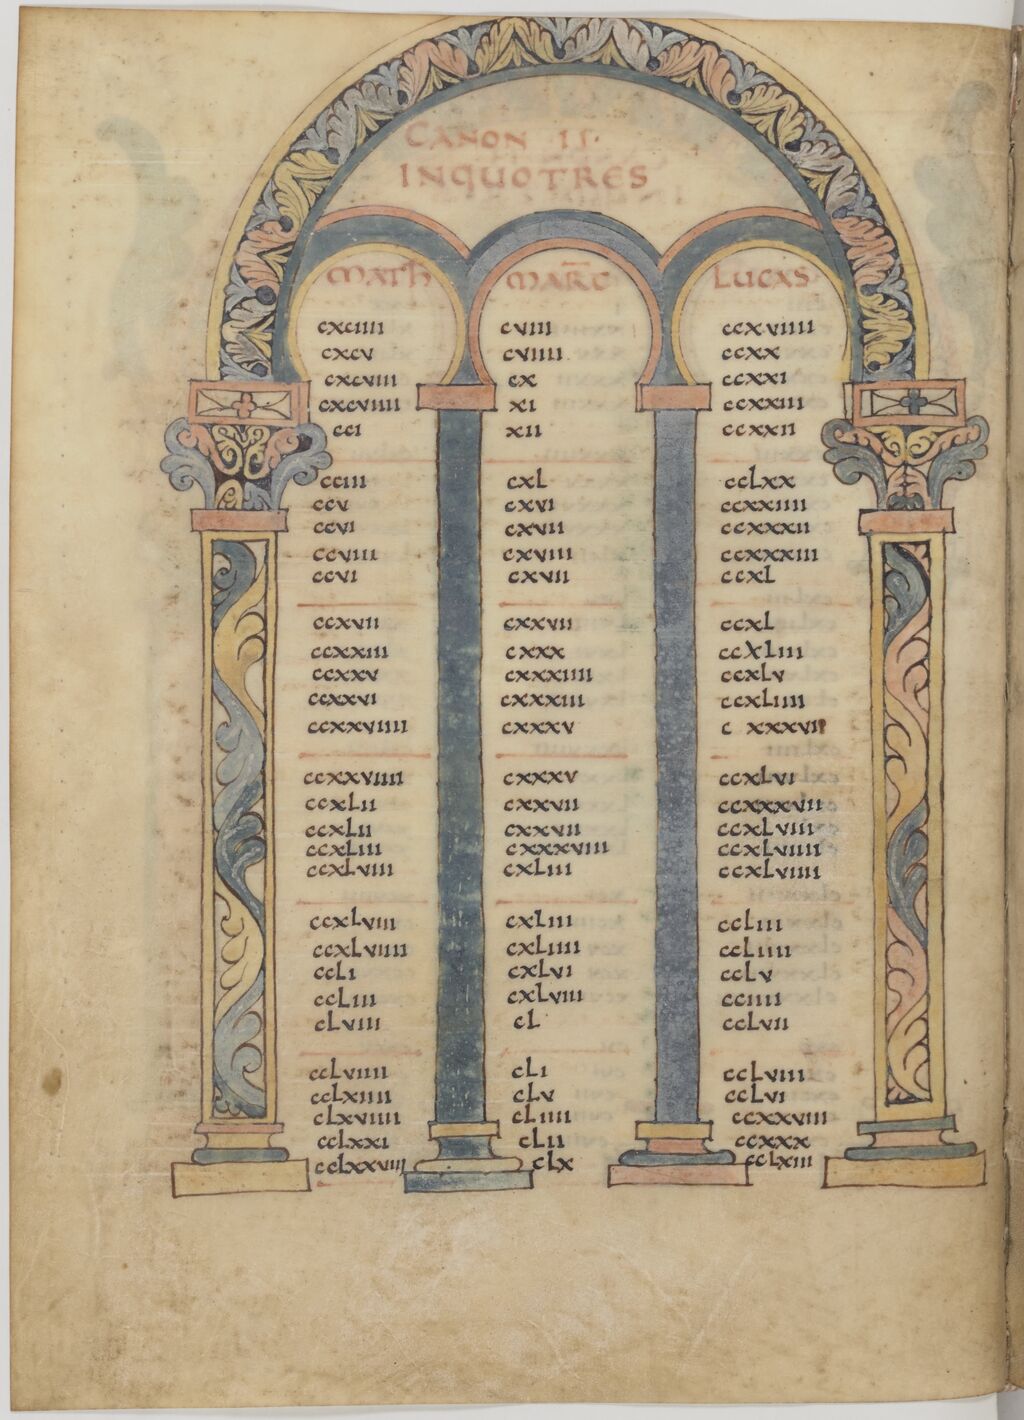 CANON II·
INQUO TRES
MATH MARC LUCAS·
cxciiii cviiii ccxviiii
cxcv cviiii ccxx
cxcviii cx ccxxi
cxcviiii xi ccxxiii
cci xii ccxxii
cciii cxl cclxx
ccv cxvi ccxxiiii
ccvi cxvii ccxxxii
ccviii cxviii ccxxxiii
ccvi cxvii ccxl
ccxvii cxxvii ccxl
ccxxiii cxxx ccxliii
ccxxv cxxxiiii ccxlv
ccxxvi cxxxiii ccxliiii
ccxxviiii cxxxv c xxxvii
ccxxviiii cxxxv ccxlvi
ccxlii cxxvii ccxxxvii
ccxlii cxxvii ccxlviii
ccxliii cxxxviii ccxlviiii
ccxlviii cxliii ccxlviiii
ccxlviii cxliii ccliii
ccxlviiii cxliiii ccliiii
ccli cxlvi cclv
ccliii cxlviii cciiii
clviii cl cclvii
cclviiii cli cclviii
cclxiiii clv cclvi
clxviiii cliiii ccxxviii
cclxxi clii ccxxx
cclxxviii clx cclxiii